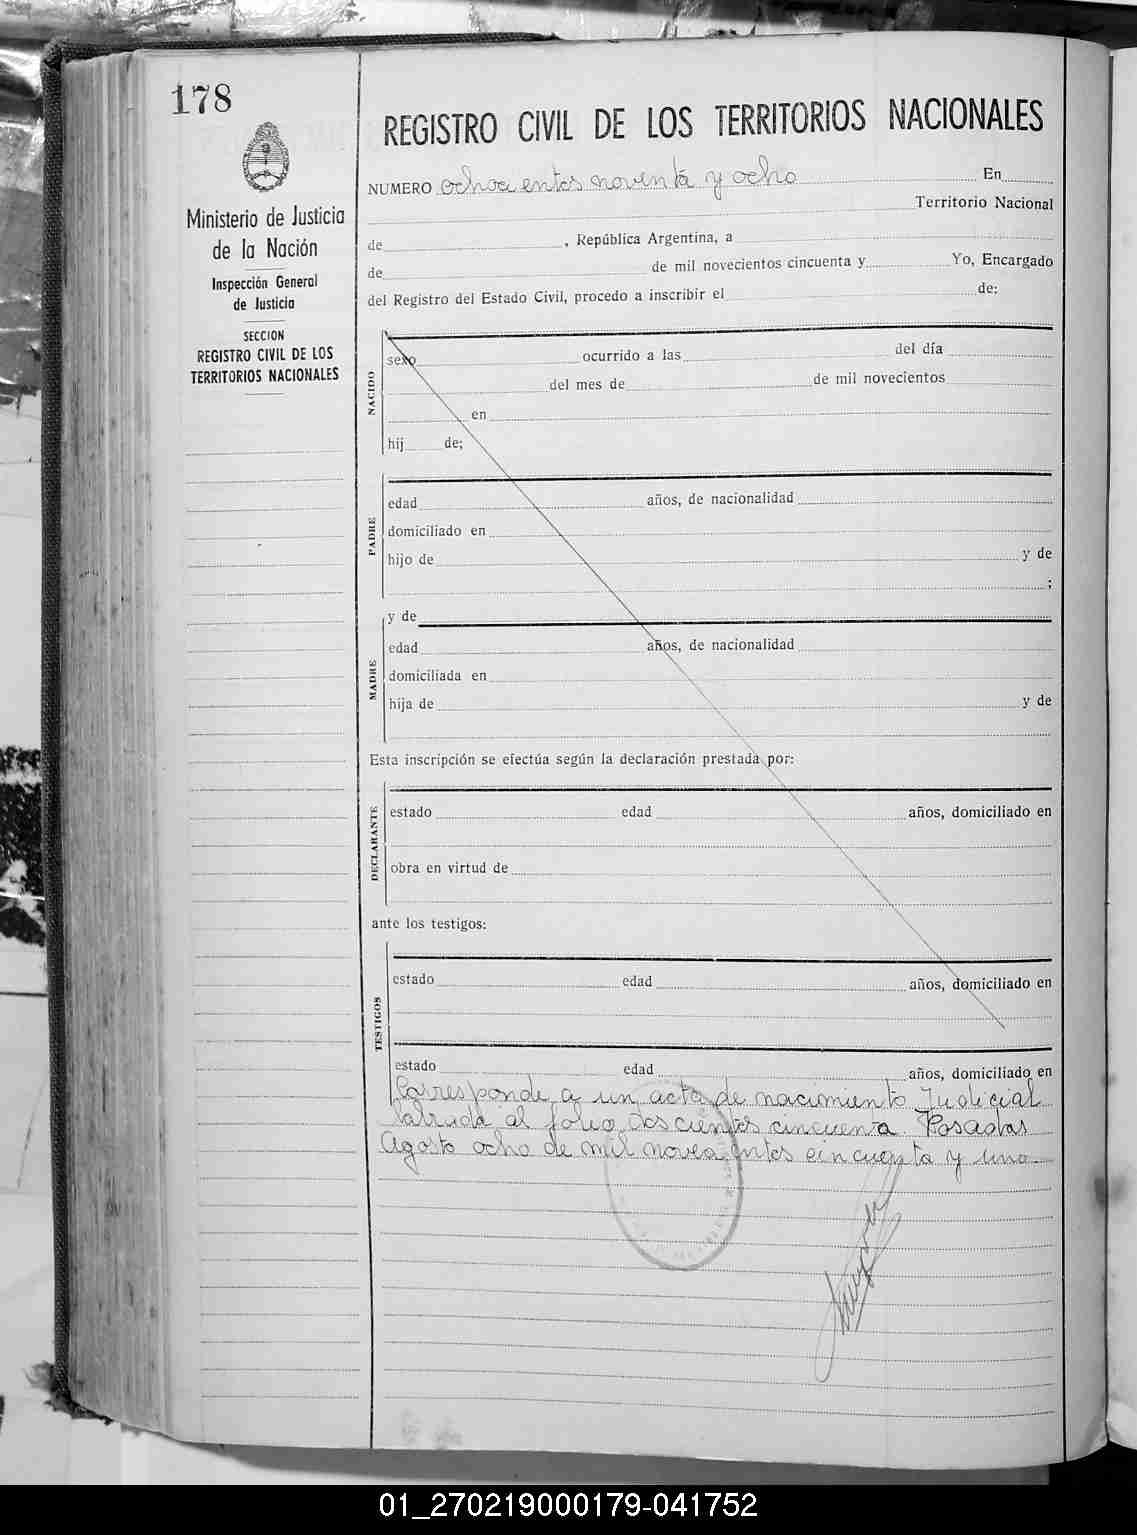 178
REGISTRO CIVIL DE LOS TERRITORIOS NACIONALES
NUMERO ochocientos noventa y ocho En
Territorio Nacional
de , República Argentina, a
de de mil novecientos cincuenta y Yo, Encargado
del Registro del Estado Civil, procedo a inscribir el de:
Ministerio de Justicia
de la Nación
Inspección General
de Justicia
SECCION
REGISTRO CIVIL DE LOS
TERRITORIOS NACIONALES
NACIDO
sexo ocurrido a las del día
del mes de de mil novecientos
en
hij de;
PADRE
edad años, de nacionalidad
domiciliado en
hijo de y de
;
MADRE
y de
edad años, de nacionalidad
domiciliada en
hija de y de
Esta inscripción se efectúa según la declaración prestada por:
DECLARANTE
estado edad años, domiciliado en
obra en virtud de
ante los testigos:
TESTIGOS
estado edad años, domiciliado en
estado edad años, domiciliado en
Corresponde a un acta de nacimiento Judicial
labrada al folio doscientos cincuenta. Posadas
Agosto ocho de mil novecientos cincuenta y uno.
01_270219000179-041752